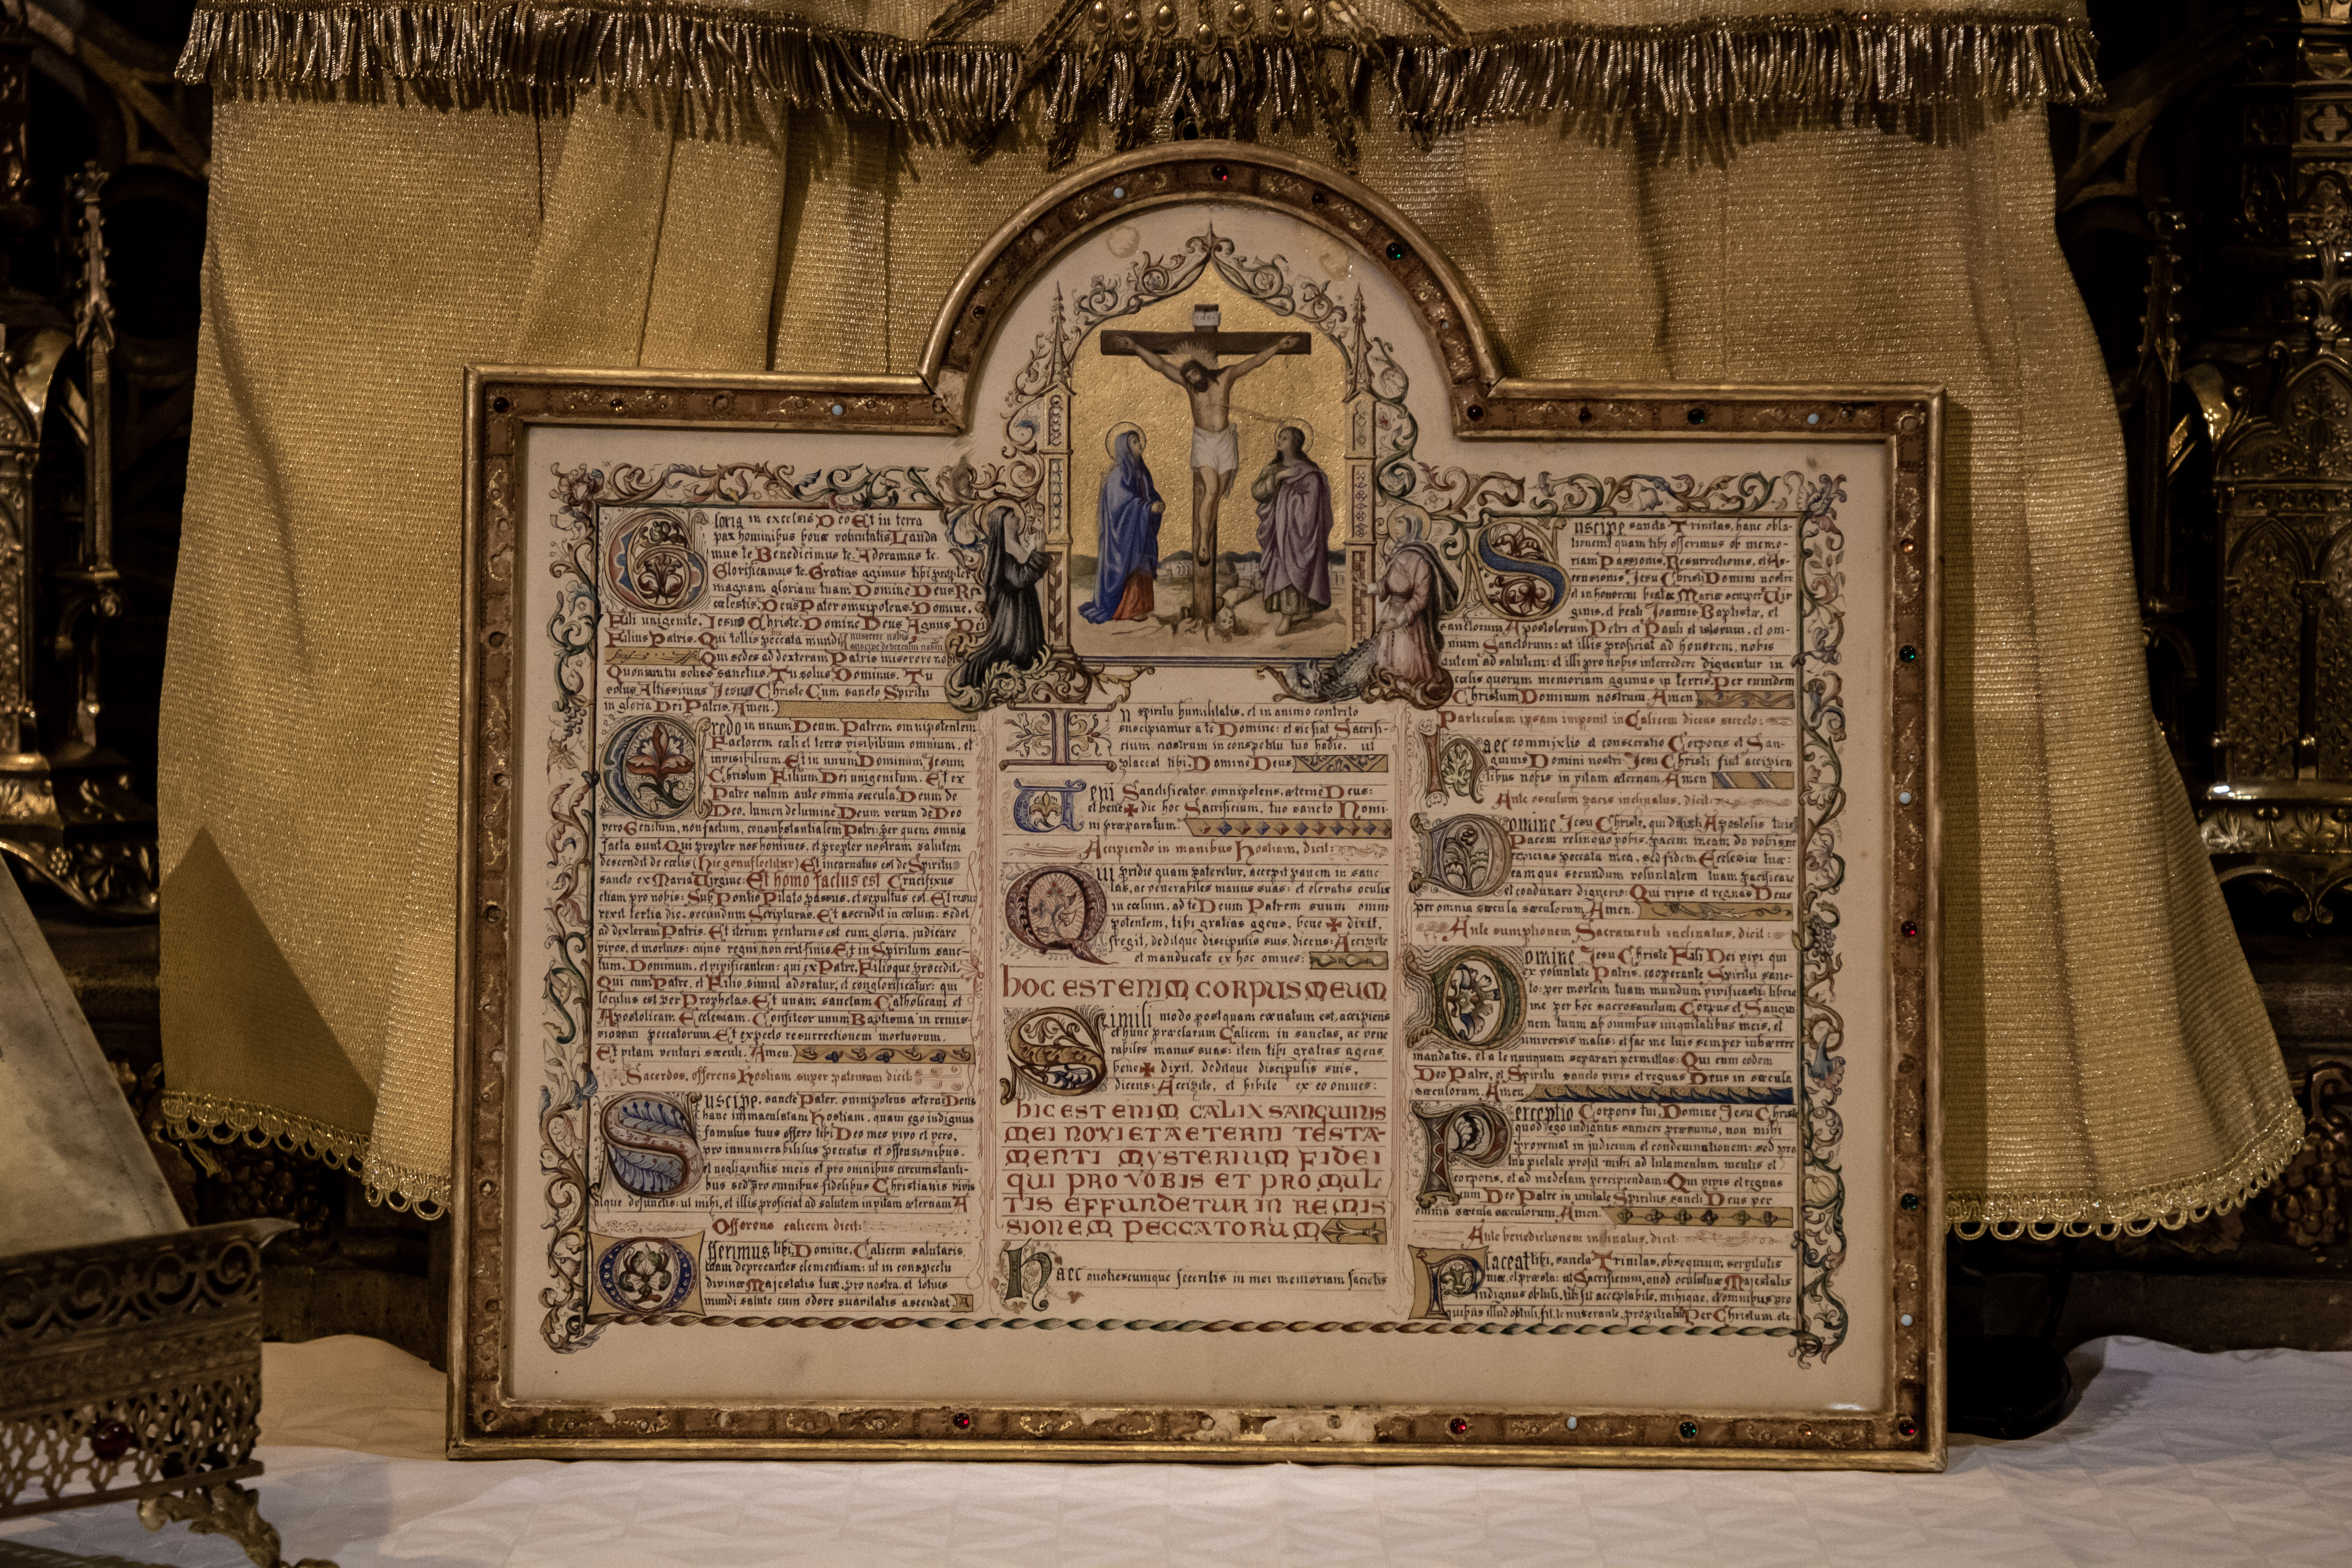 INRI
Gloria in excelsis Deo Et in terra
pax hominibus bonæ voluntatis Lauda
mus te Benedicimus te. Adoramus te.
Glorificamus te. Gratias agimus tibi propter
magnam gloriam tuam. Domine Deus Rex
cœlestis, Deus Pater omnipotens. Domine,
Fili unigenite, Jesu Christe. Domine Deus Agnus Dei
Filius Patris. Qui tollis peccata mundi miserere nobis
suscipe deprecationem nostram
Qui sedes ad dexteram Patris miserere nobis
Quoniam tu solus sanctus. Tu solus Dominus. Tu
solus Altissimus Jesu Christe Cum sancto Spiritu
in gloria Dei Patris. Amen.
Credo in unum Deum. Patrem omnipotentem
Factorem cœli et terræ visibilium omnium, et
invisibilium. Et in unum Dominum Jesum
Christum Filium Dei unigenitum. Et ex
Patre natum ante omnia sæcula. Deum de
Deo, lumen de lumine Deum verum de Deo
vero Genitum, non factum, consubstantialem Patri: per quem omnia
facta sunt. Qui propter nos homines, et propter nostram salutem
descendit de cœlis (hic genuflectitur) Et incarnatus est de Spiritu
sancto ex Maria Virgine: Et homo factus est Crucifixus
etiam pro nobis: Sub Pontio Pilato passus, et sepultus est. Et resur
rexit tertia die, secundum Scripturas. Et ascendit in cœlum: sedet
ad dexteram Patris. Et iterum venturus est cum gloria, judicare
vivos, et mortuos: cujus regni non erit finis. Et in Spiritum sanc-
tum, Dominum, et vivificantem: qui ex Patre, Filioque procedit.
Qui cum Patre, et Filio simul adoratur, et conglorificatur: qui
locutus est per Prophetas. Et unam sanctam Catholicam et
Apostolicam Ecclesiam. Confiteor unum Baptisma in remis-
sionem peccatorum. Et expecto resurrectionem mortuorum.
Et vitam venturi sæculi. Amen.
Sacerdos, offerens Hostiam super patenam dicit:
Suscipe, sancte Pater, omnipotens æterne Deus
hanc immaculatam Hostiam, quam ego indignus
famulus tuus offero tibi Deo meo vivo et vero,
pro innumerabilibus peccatis et offensionibus,
et negligentiis meis et pro omnibus circumstanti-
bus sed pro omnibus fidelibus Christianis vivis
atque defunctis: ut mihi, et illis proficiat ad salutem in vitam æternam A
Offerens calicem dicit:
Offerimus tibi Domine, Calicem salutaris
tuam deprecantes clementiam: ut in conspectu
divinæ Majestatis tuæ, pro nostra, et totius
mundi salute cum odore suavitatis ascendat A
In spiritu humilitatis, et in animo contrito
suscipiamur a te Domine: et sic fiat Sacrifi-
cium nostrum in conspectu tuo hodie, ut
placeat tibi Domine Deus
Veni Sanctificator, omnipotens, æterne Deus:
et bene ✠ dic hoc Sacrificium, tuo sancto Nomi-
ni præparatum.
Accipiendo in manibus Hostiam, dicit:
Qui pridie quam pateretur, accepit panem in sanc
tas, ac venerabiles manus suas: et elevatis oculis
in cœlum, ad te Deum Patrem suum omni
potentem, tibi gratias agens, bene ✠ dixit,
fregit, deditque discipulis suis, dicens: Accipite
et manducate ex hoc omnes:
HOC EST ENIM CORPUS MEUM
Simili modo postquam cœnatum est, accipiens
et hunc præclarum Calicem in sanctas, ac vene
rabiles manus suas: item tibi gratias agens,
bene ✠ dixit, deditque discipulis suis,
dicens: Accipite, et bibite ex eo omnes:
HIC EST ENIM CALIX SANGUINIS
MEI NOVI ET AETERNI TESTA-
MENTI MYSTERIUM FIDEI
QUI PRO VOBIS ET PRO MUL
TIS EFFUNDETUR IN REMIS
SIONEM PECCATORUM
Haec quotiescumque feceritis in mei memoriam facietis
Suscipe sancta Trinitas, hanc obla-
tionem quam tibi offerimus ob memo-
riam Passionis, Resurrectionis, et As-
censionis, Jesu Christi Domini nostri
et in honorem beatæ Mariæ semper Vir
ginis, et beati Joannis Baptistæ, et
sanctorum Apostolorum Petri et Pauli et istorum, et om-
nium Sanctorum: ut illis proficiat ad honorem, nobis
autem ad salutem: et illi pro nobis intercedere dignentur in
cœlis quorum memoriam agimus in terris. Per eumdem
Christum Dominum nostrum. Amen
Particulam ipsam imponit in Calicem dicens secreto:
Haec commixtio et consecratio Corporis et San-
guinis Domini nostri Jesu Christi fiat accipien
tibus nobis in vitam æternam. Amen
Ante osculum pacis inclinatus, dicit:
Domine Jesu Christe, qui dixisti Apostolis tuis
Pacem relinquo vobis, pacem meam do vobis ne
respicias peccata mea, sed fidem Ecclesiæ tuæ:
eamque secundum voluntatem tuam pacificare
et coadunare digneris: Qui vivis et regnas Deus
per omnia sæcula sæculorum. Amen.
Ante sumptionem Sacramenti inclinatus, dicit:
Domine Jesu Christe Fili Dei vivi qui
ex voluntate Patris, cooperante Spiritu sanc-
to: per mortem tuam mundum vivificasti: libera
me per hoc sacrosanctum Corpus et Sangui
nem tuum ab omnibus iniquitatibus meis, et
universis malis: et fac me tuis semper inhærere
mandatis, et a te nunquam separari permittas: Qui cum eodem
Deo Patre, et Spiritu sancto vivis et regnas Deus in sæcula
sæculorum. Amen.
Perceptio Corporis tui, Domine Jesu Christe
quod ego indignus sumere præsumo, non mihi
proveniat in judicium et condemnationem: sed pro
tua pietate prosit mihi ad tutamentum mentis et
corporis, et ad medelam percipiendam: Qui vivis et regnas
cum Deo Patre in unitate Spiritus sancti Deus per
omnia sæcula sæculorum. Amen.
Ante benedictionem inclinatus, dicit:
Placeat tibi, sancta Trinitas, obsequium servitutis
meæ, et præsta: ut Sacrificium, quod oculis tuæ Majestatis
indignus obtuli, tibi sit acceptabile, mihique, et omnibus pro
quibus illud obtuli, sit, te miserante, propitiabile Per Christum. etc